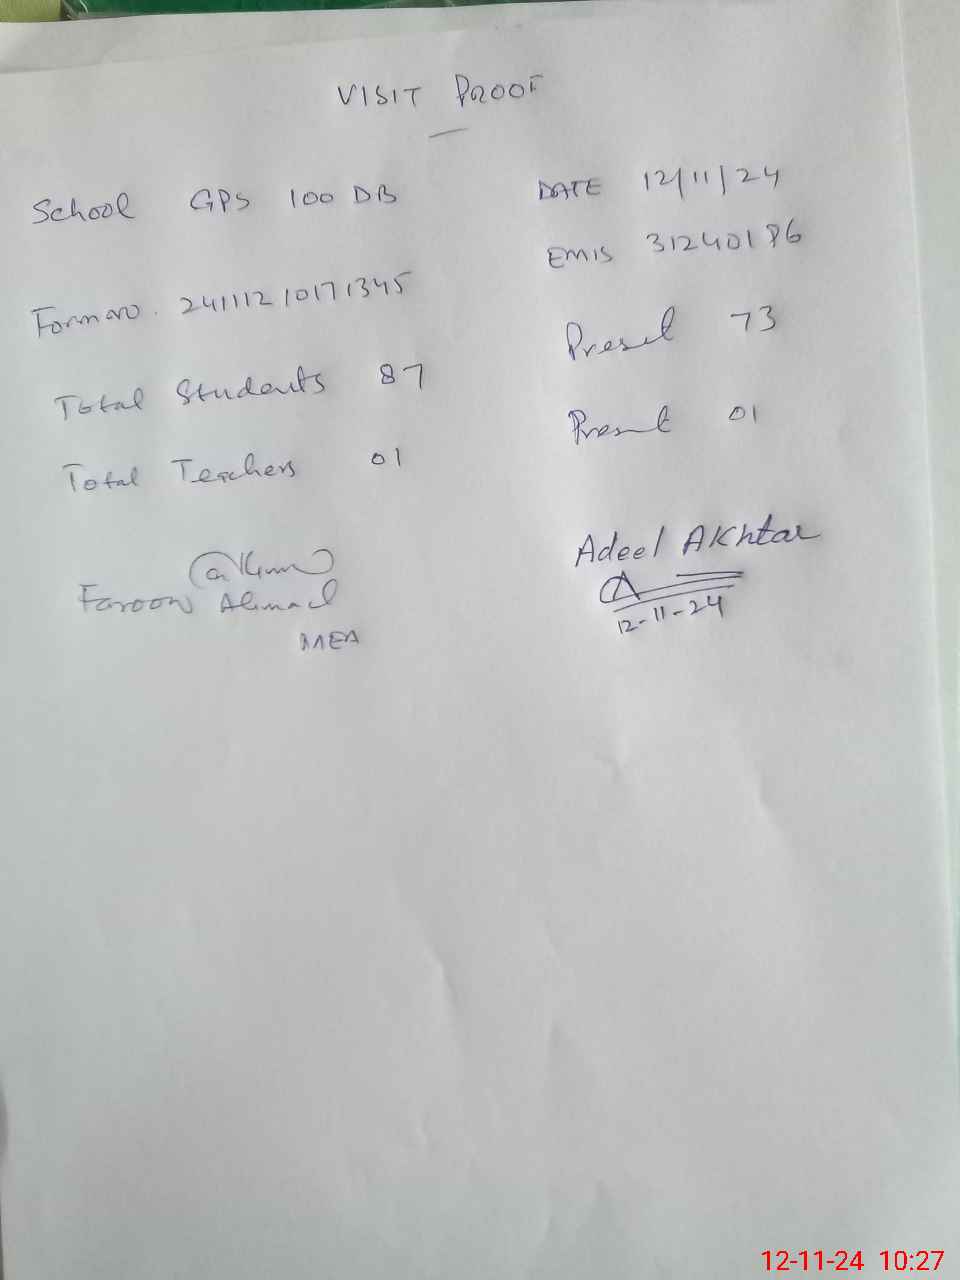 VISIT PROOF
School GPS 100 DB DATE 12/11/24
EMIS 31240186
Form no. 24111210171345
Total Students 87 Present 73
Total Teachers 01 Present 01
Adeel Akhtar
Farooq Ahmad
12-11-24
MEA
12-11-24 10:27